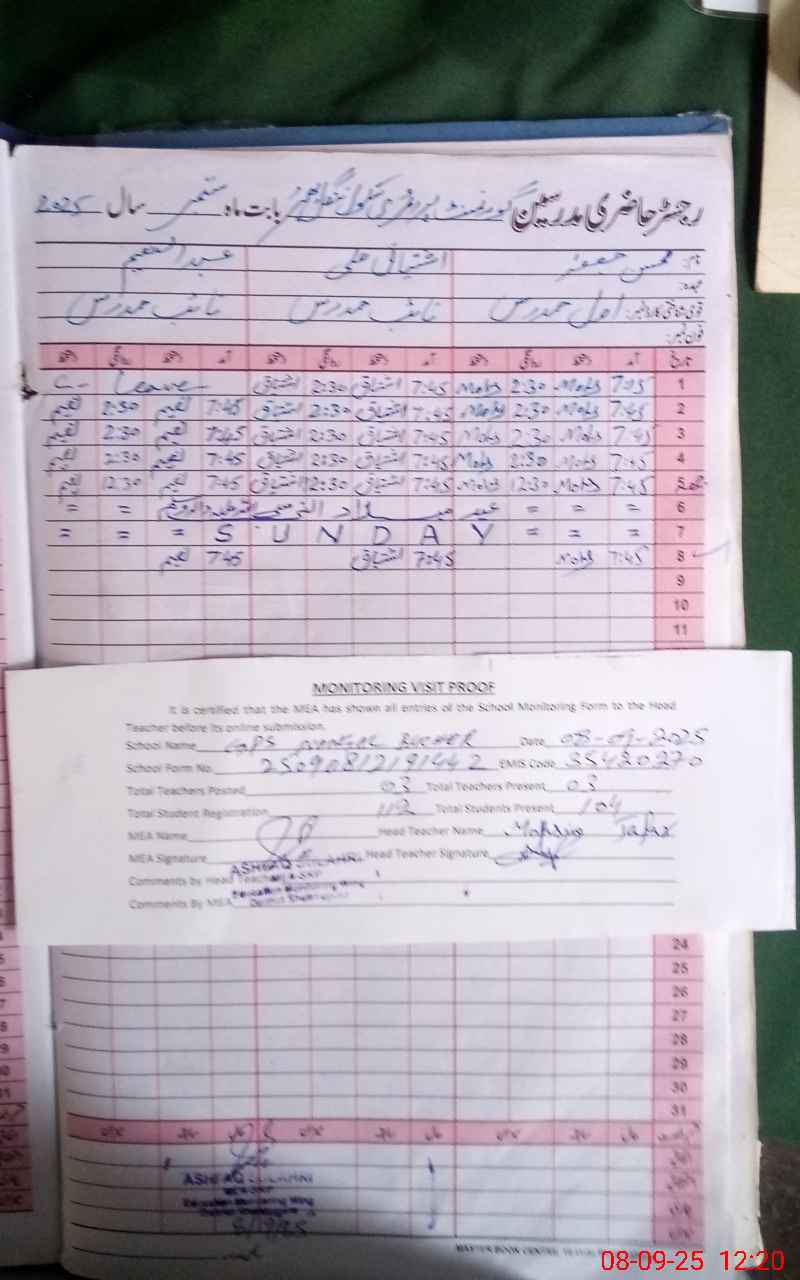 رجسٹر حاضری مدرسین گورنمنٹ پرائمری سکول بابت ماہ ستمبر سال 2025
نام: محسن جعفر اشتیاق علی عبدالنعیم
عہدہ:
قومی شناختی کارڈ نمبر: اول مدرس نائب مدرس نائب مدرس
فون نمبر:
تاریخ آمد دستخط روانگی دستخط آمد دستخط روانگی دستخط آمد دستخط روانگی دستخط
1 7:45 Mohs 2:30 Mohs 7:45 اشتیاق 2:30 اشتیاق C- Leave
2 7:45 Mohs 2:30 Mohs 7:45 اشتیاق 2:30 اشتیاق 7:45 نعیم 2:30 نعیم
3 7:45 Mohs 2:30 Mohs 7:45 اشتیاق 2:30 اشتیاق 7:45 نعیم 2:30 نعیم
4 7:45 Mohs 2:30 Mohs 7:45 اشتیاق 2:30 اشتیاق 7:45 نعیم 2:30 نعیم
5 7:45 Mohs 12:30 Mohs 7:45 اشتیاق 12:30 اشتیاق 7:45 نعیم 12:30 نعیم
6 = = = عید میلاد النبی صلی اللہ علیہ وآلہ وسلم = =
= = = S U N D A Y = = = 7
8 7:45 Mohs 7:45 اشتیاق 7:45 نعیم
9
10
11
MONITORING VISIT PROOF
It is certified that the MEA has shown all entries of the School Monitoring Form to the Head
Teacher before its online submission.
School Name GPS Date 08-09-2025
School Form No. EMIS Code 35430270
Total Teachers Posted 03 Total Teachers Present 03
Total Student Registration 112 Total Students Present 104
MEA Name Head Teacher Name Mohsin Jafar
MEA Signature Head Teacher Signature
Comments by Head Teacher
Comments By MEA
24
25
26
27
28
29
30
31
ASHFAQ
Education Monitoring Wing
8/9/25
08-09-25 12:20